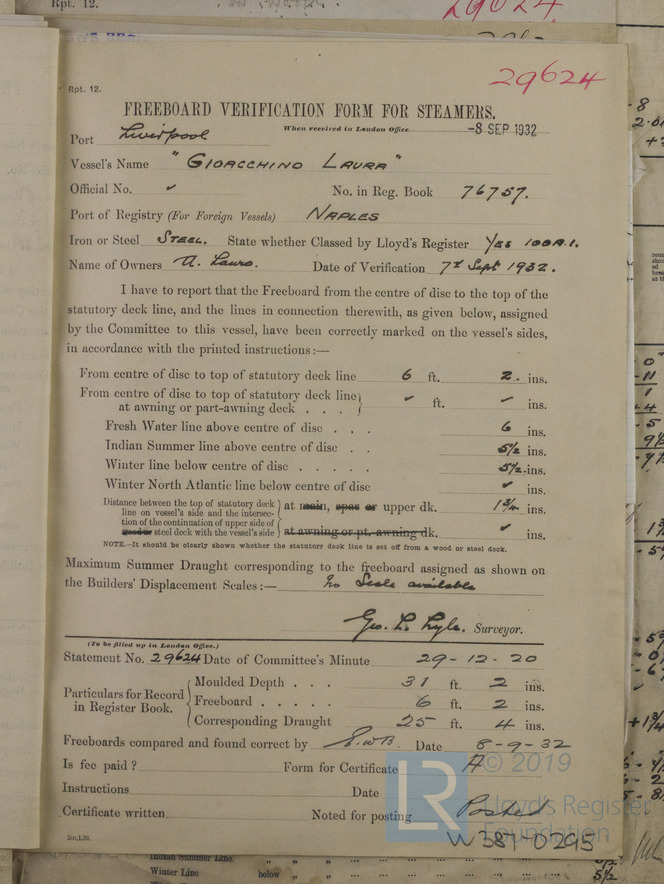 Rpt. 12.
29624.
Rpt. 12.
29624
FREEBOARD VERIFICATION FORM FOR STEAMERS.
When received in London Office -8 SEP 1932
Port Liverpool
Vessel's Name "GIOACCHINO LAURA"
Official No. ✓ No. in Reg. Book 76757.
Port of Registry (For Foreign Vessels) NAPLES
Iron or Steel STEEL. State whether Classed by Lloyd's Register YES 100A.1.
Name of Owners A. Lauro. Date of Verification 7th Sept 1932.
I have to report that the Freeboard from the centre of disc to the top of the
statutory deck line, and the lines in connection therewith, as given below, assigned
by the Committee to this vessel, have been correctly marked on the vessel's sides,
in accordance with the printed instructions:—
From centre of disc to top of statutory deck line 6 ft. 2. ins.
From centre of disc to top of statutory deck line
at awning or part-awning deck . . . ✓ ft. ✓ ins.
Fresh Water line above centre of disc . . . 6 ins.
Indian Summer line above centre of disc . . 5½ ins.
Winter line below centre of disc . . . . . 5½ ins.
Winter North Atlantic line below centre of disc ✓ ins.
Distance between the top of statutory deck
line on vessel's side and the intersec-
tion of the continuation of upper side of
wood or steel deck with the vessel's side
at main, spar or upper dk. 1¾ ins.
at awning or pt. awning dk. ✓ ins.
NOTE.—It should be clearly shown whether the statutory deck line is set off from a wood or steel deck.
Maximum Summer Draught corresponding to the freeboard assigned as shown on
the Builders' Displacement Scales:— No Scale available
Geo. L. Lyle. Surveyor.
(To be filled up in London Office.)
Statement No. 29624 Date of Committee's Minute 29-12-20
Particulars for Record
in Register Book.
Moulded Depth . . . 31 ft. 2 ins.
Freeboard . . . . . 6 ft. 2 ins.
Corresponding Draught 25 ft. 4 ins.
Freeboards compared and found correct by E.W.B. Date 8-9-32
Is fee paid? Form for Certificate A
Instructions Date
Certificate written Noted for posting Posted
W387-0295
© 2019
Lloyd's Register
Foundation
LR
Indian Summer Line
Winter Line below " " " 5½